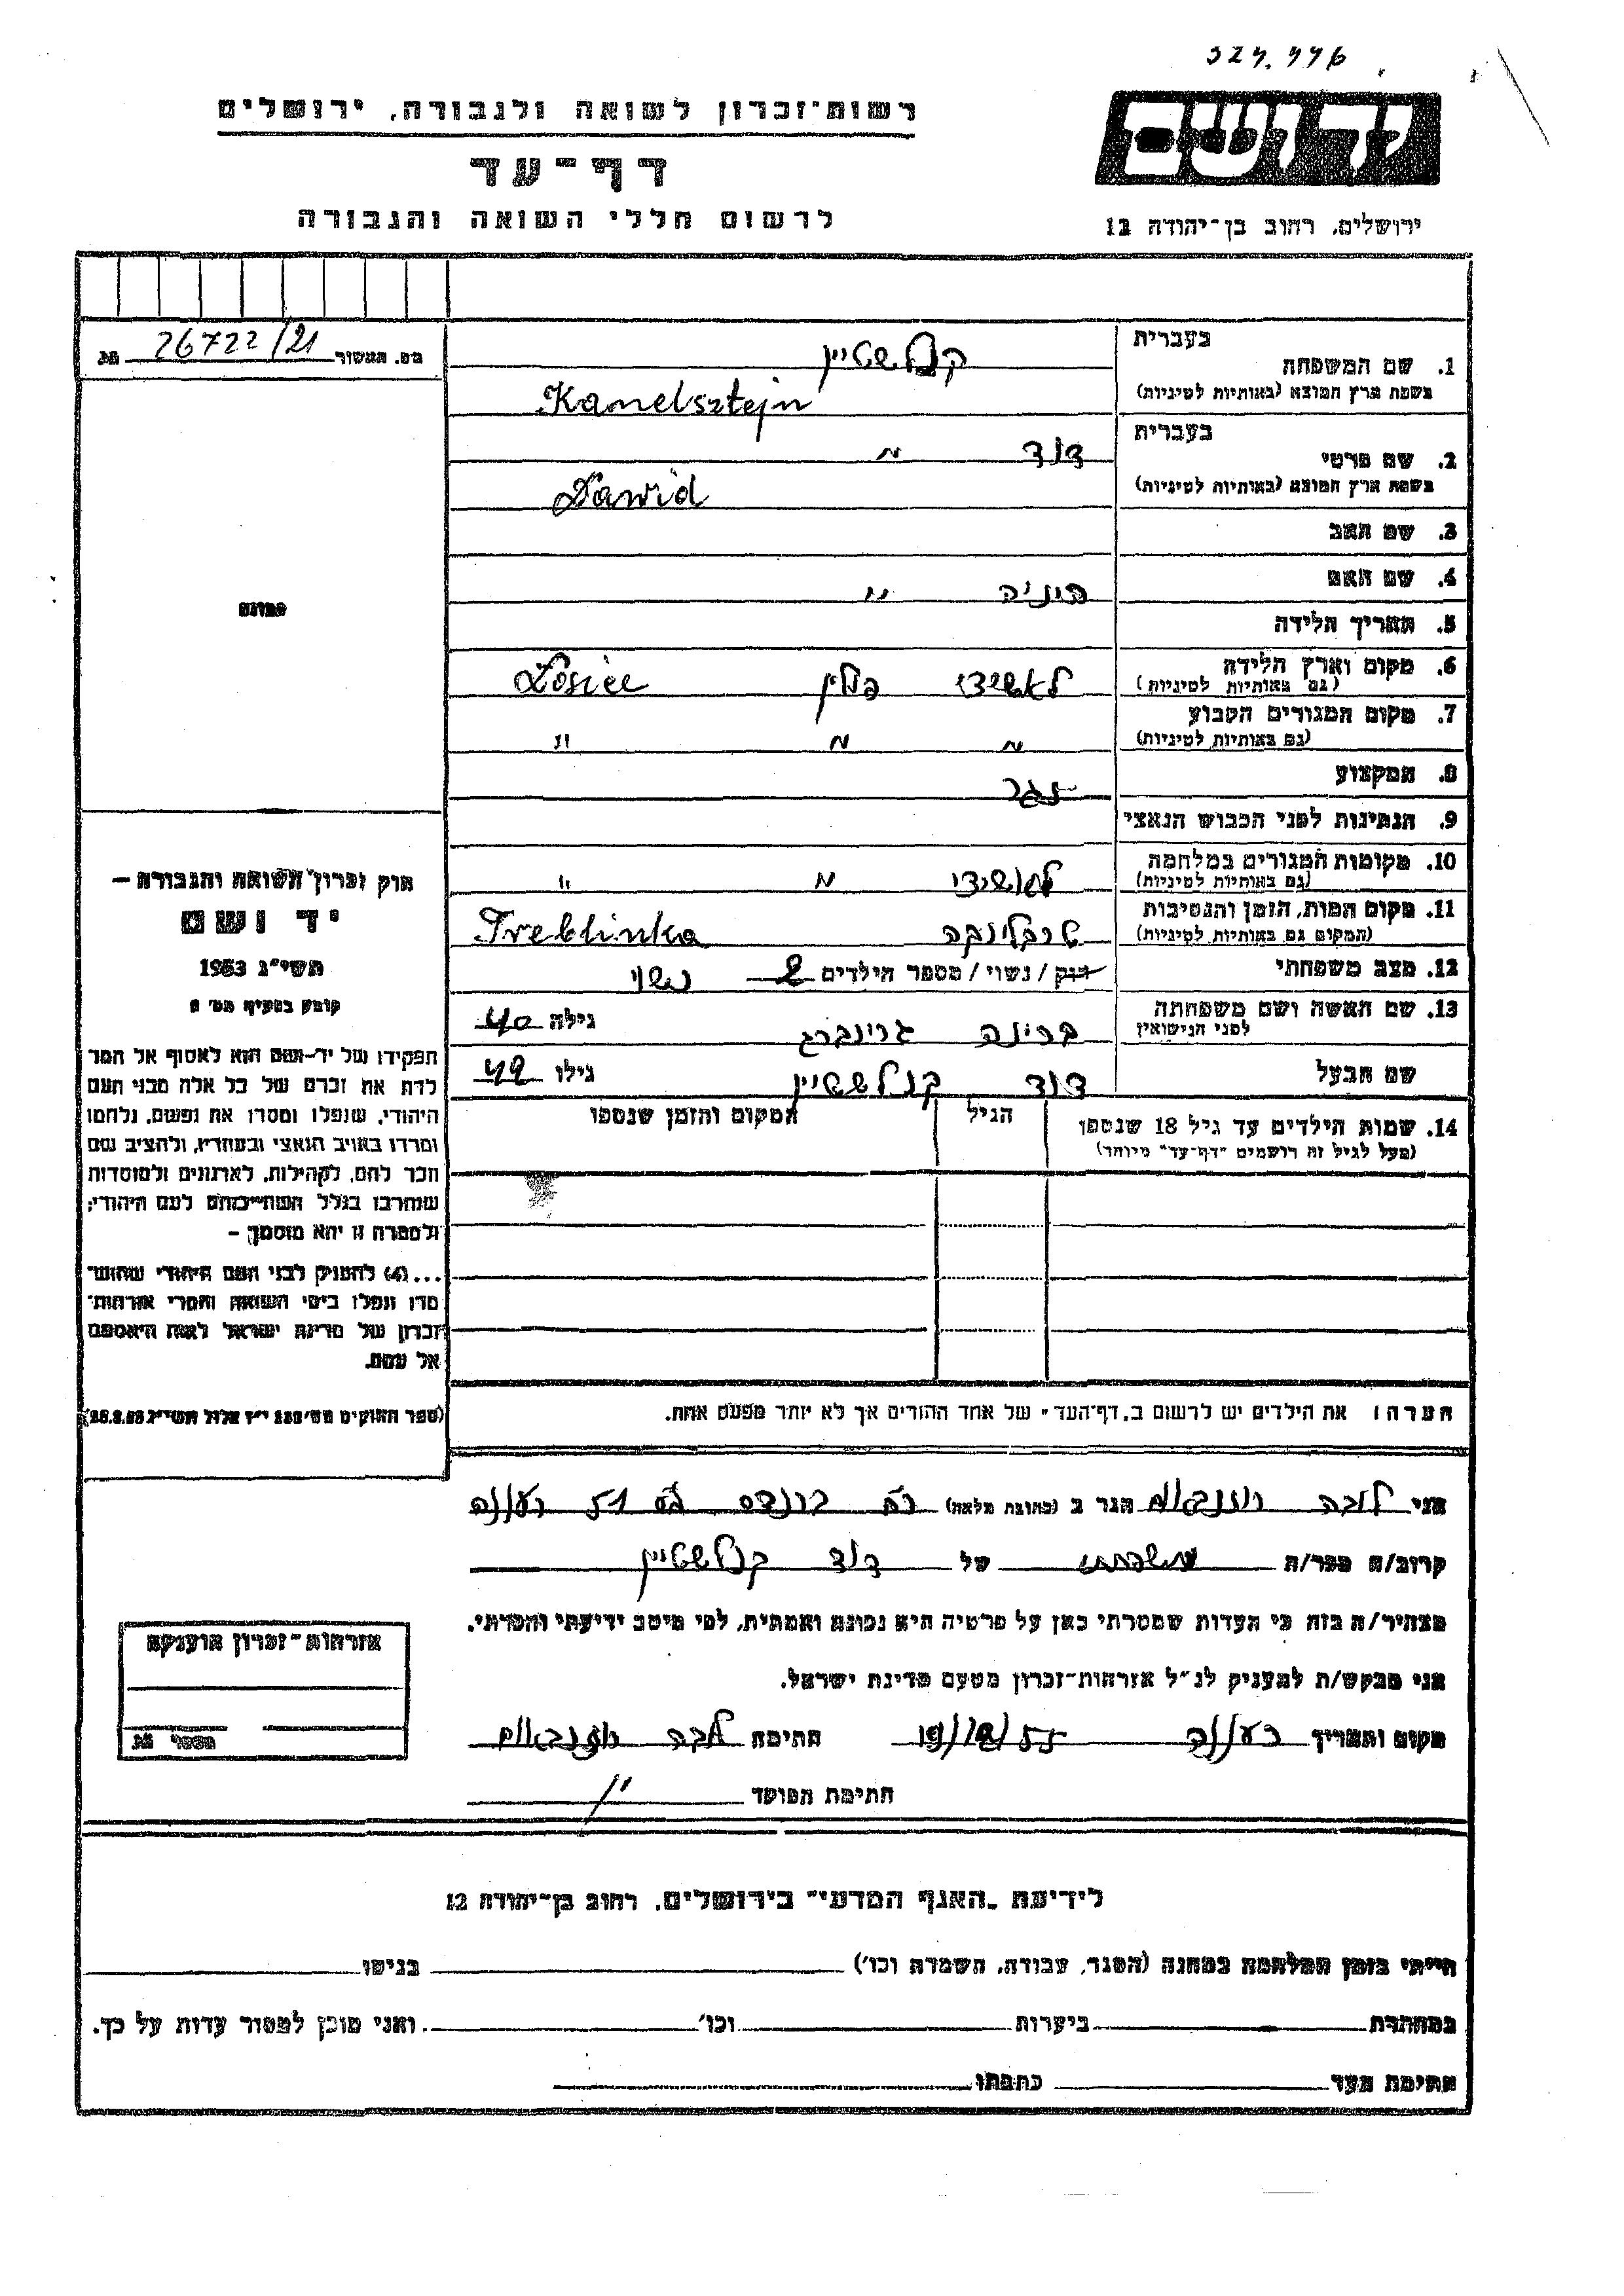 324.446
רשות־זכרון לשואה ולגבורה, ירושלים
דף־עד
לרשום חללי השואה והגבורה
ירושלים, רחוב בן־יהודה 12
מס. האשור 26722/21
בעברית
1. שם המשפחה
קנלשטיין
בשפת ארץ המוצא (באותיות לטיניות)
Kanelsztejn
בעברית
2. שם פרטי
דוד "
בשפת ארץ המוצא (באותיות לטיניות)
Dawid
3. שם האב
4. שם האם "
5. תאריך הלידה
6. מקום וארץ הלידה לאשיצי פולין Łosice
(גם באותיות לטיניות)
7. מקום המגורים הקבוע " " "
(גם באותיות לטיניות)
8. המקצוע נגר
9. הנתינות לפני הכבוש הנאצי
10. מקומות המגורים במלחמה לאשיצי " "
(גם באותיות לטיניות)
11. מקום המות, הזמן והנסיבות טרבלינקה Treblinka
(המקום גם באותיות לטיניות)
12. מצב משפחתי רוק / נשוי / מספר הילדים 2 נשוי
13. שם האשה ושם משפחתה גרינברג גילה 40
לפני הנישואין
שם הבעל דוד קנלשטיין גילו 42
14. שמות הילדים עד גיל 18 שנספו הגיל המקום והזמן שנספו
(מעל לגיל זה רושמים "דף־עד" מיוחד)
הערה: את הילדים יש לרשום ב"דף־העד" של אחד ההורים אך לא יותר מפעם אחת.
פתגם
חוק זכרון השואה והגבורה —
יד ושם
תשי"ג 1953
קובע בסעיף מס'
תפקידו של יד־ושם הוא לאסוף אל המו־
לדת את זכרם של כל אלה מבני העם
היהודי, שנפלו ומסרו את נפשם, נלחמו
ומרדו באויב הנאצי ובעוזריו, ולהציב שם
וזכר להם, לקהילות, לארגונים ולמוסדות
שנחרבו בגלל השתייכותם לעם היהודי;
ולמטרה זו יהא מוסמך —
...(4) להעניק לבני העם היהודי שהוש־
מדו ונפלו בימי השואה והמרי אזרחות־
זכרון של מדינת ישראל לאות היאספם
אל עמם.
(ספר החוקים מס' 132 י"ז אלול תשי"ג 28.8.53)
אני לובה רוזנבאום הגר ב (כתובת מלאה) רח' ברנדס 51 רעננה
קרוב/ה מכר/ה משפחתי של דוד קנלשטיין
מצהיר/ה בזה כי העדות שמסרתי כאן על פרטיה היא נכונה ואמתית, לפי מיטב ידיעתי והכרתי.
אני מבקש/ת להעניק לנ"ל אזרחות־זכרון מטעם מדינת ישראל.
מקום ותאריך רעננה 19/12/55 חתימה לובה רוזנבאום
חתימת הפוקד
אזרחות־זכרון הוענקה
מספר
לידיעת "האגף המדעי" בירושלים, רחוב בן־יהודה 12
הייתי בזמן המלחמה במחנה (הסגר, עבודה, השמדה וכו') בגיטו
במחתרת ביערות וכו' ואני מוכן למסור עדות על כך.
חתימת העד כתבתו